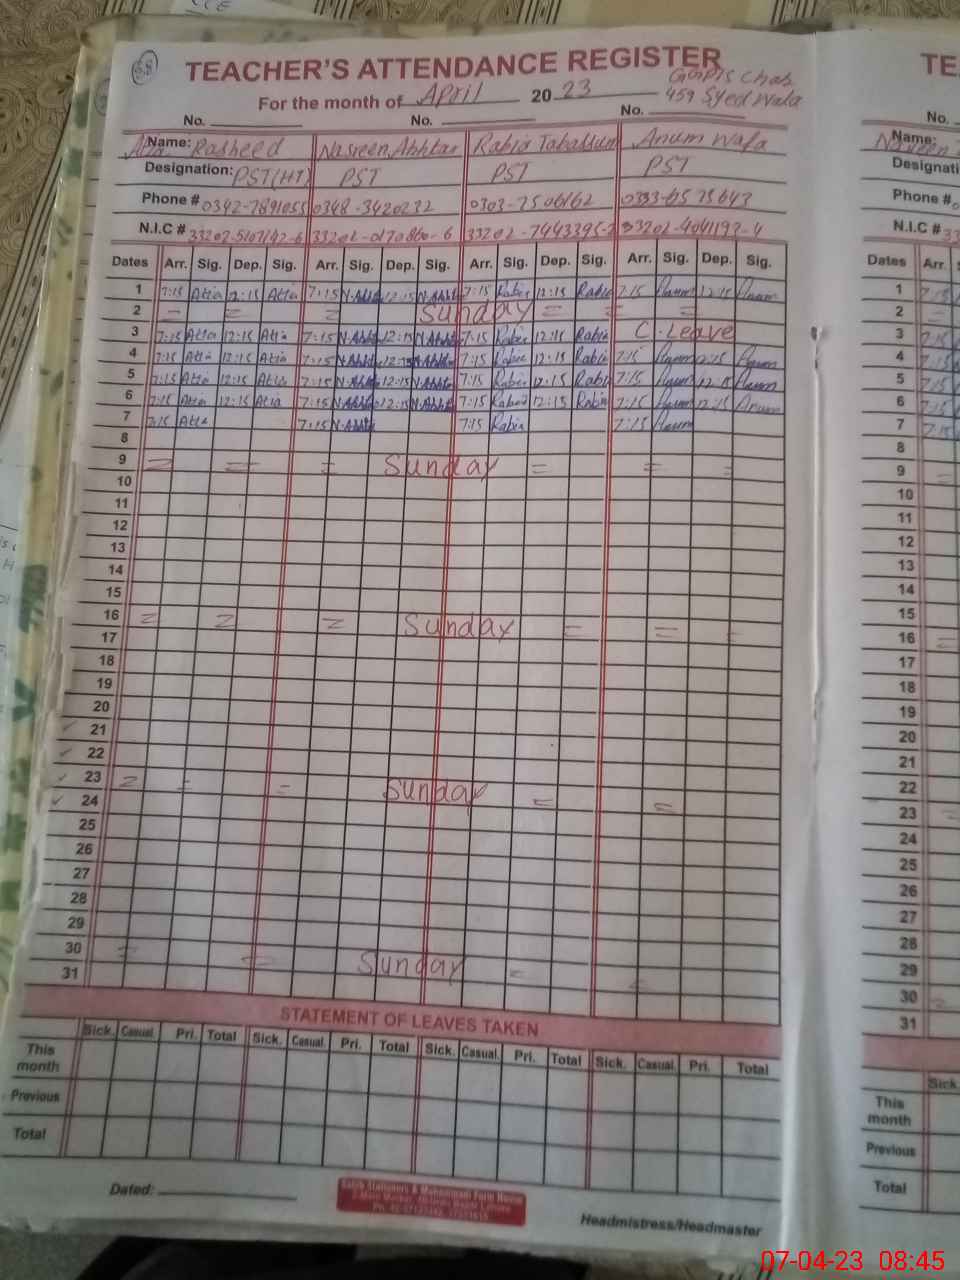 58
TEACHER'S ATTENDANCE REGISTER
GGPS Chak
For the month of April 2023
459 Syed Wala
No. No. No.
Name: Rasheed Nasreen Akhtar Rabia Tabassum Anum Wafa
Designation: PST(HT) PST PST PST
Phone # 0342-7891055 0348-3420232 0303-7506162
N.I.C #
Dates Arr. Sig. Dep. Sig. Arr. Sig. Dep. Sig. Arr. Sig. Dep. Sig. Arr. Sig. Dep. Sig.
1 7:15 Atia 12:15 Atia 7:15 N.Akhtar 12:15 N.Akhtar 7:15 Rabia 12:15 Rabia 7:15 Anum 12:15 Anum
2 = = = Sunday = = =
3 7:15 Atia 12:15 Atia 7:15 N.Akhtar 12:15 N.Akhtar 7:15 Rabia 12:15 Rabia C.Leave
4 7:15 Atia 12:15 Atia 7:15 N.Akhtar 12:15 N.Akhtar 7:15 Rabia 12:15 Rabia 7:15 Anum 12:15 Anum
5 7:15 Atia 12:15 Atia 7:15 N.Akhtar 12:15 N.Akhtar 7:15 Rabia 12:15 Rabia 7:15 Anum 12:15 Anum
6 7:15 Atia 12:15 Atia 7:15 N.Akhtar 12:15 N.Akhtar 7:15 Rabia 12:15 Rabia 7:15 Anum 12:15 Anum
7 7:15 Atia 7:15 N.Akhtar 7:15 Rabia 7:15 Anum
8
9 = = = Sunday = = =
10
11
12
13
14
15
16 = = = Sunday = = =
17
18
19
20
21
22
23 = = = Sunday = =
24
25
26
27
28
29
30 = = Sunday = =
31
STATEMENT OF LEAVES TAKEN
Sick. Casual. Pri. Total Sick. Casual. Pri. Total Sick. Casual. Pri. Total Sick. Casual. Pri. Total
This month
Previous
Total
Dated:
Headmistress/Headmaster
TE
No.
Name:
Designati
Phone #
N.I.C # 33
Dates Arr.
1 7:15
2 =
3 7:15
4 7:15
5 7:15
6 7:15
7 7:15
8
9 =
10
11
12
13
14
15
16 =
17
18
19
20
21
22
23 =
24
25
26
27
28
29
30 =
31
Sick.
This month
Previous
Total
07-04-23 08:45